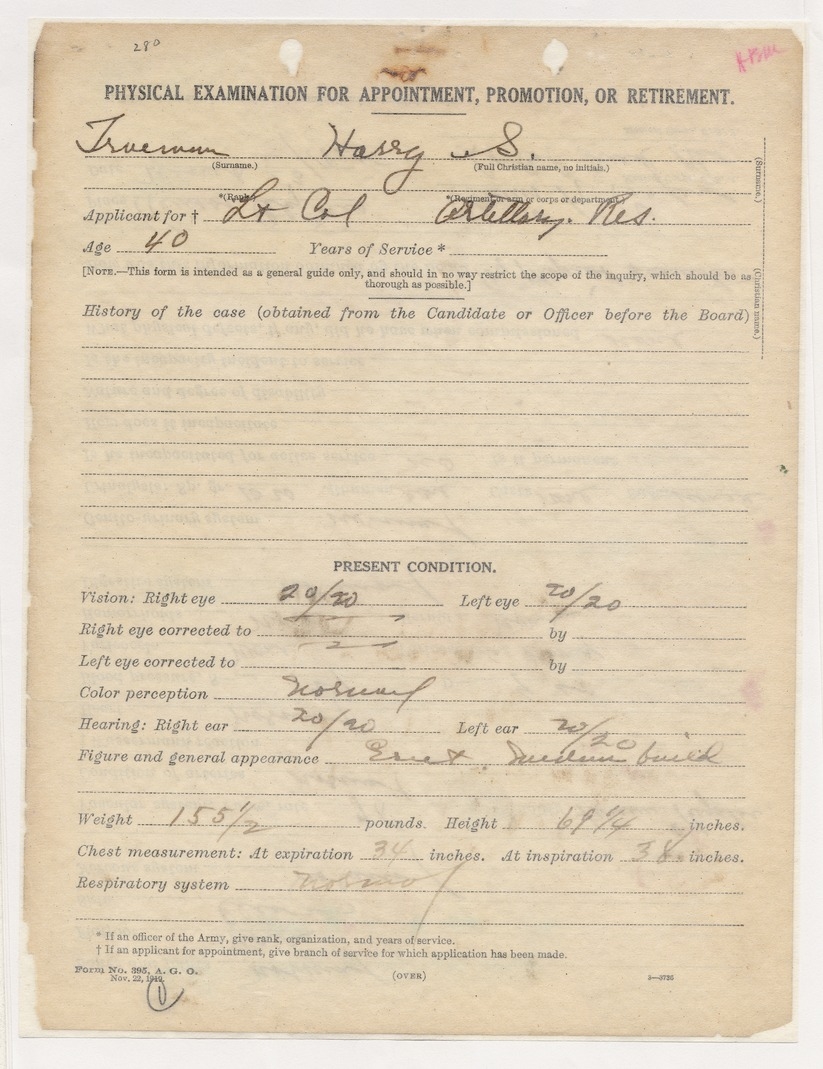 280
PHYSICAL EXAMINATION FOR APPOINTMENT, PROMOTION, OR RETIREMENT.
Trueman Harry S.
(Surname.) (Full Christian name, no initials.)
*(Rank) *(Regiment or arm or corps or department)
Applicant for † Lt Col Artillery. Res.
Age 40 Years of Service *
[NOTE.—This form is intended as a general guide only, and should in no way restrict the scope of the inquiry, which should be as
thorough as possible.]
History of the case (obtained from the Candidate or Officer before the Board)
PRESENT CONDITION.
Vision: Right eye 20/20 Left eye 20/20
Right eye corrected to by
Left eye corrected to by
Color perception Normal
Hearing: Right ear 20/20 Left ear 20/20
Figure and general appearance Erect. Medium build
Weight 155 1/2 pounds. Height 69 1/4 inches.
Chest measurement: At expiration 34 inches. At inspiration 38 inches.
Respiratory system Normal
* If an officer of the Army, give rank, organization, and years of service.
† If an applicant for appointment, give branch of service for which application has been made.
Form No. 395, A. G. O.
Nov. 22, 1919.
(OVER)
3—3726
1
(Surname.)
(Christian name.)